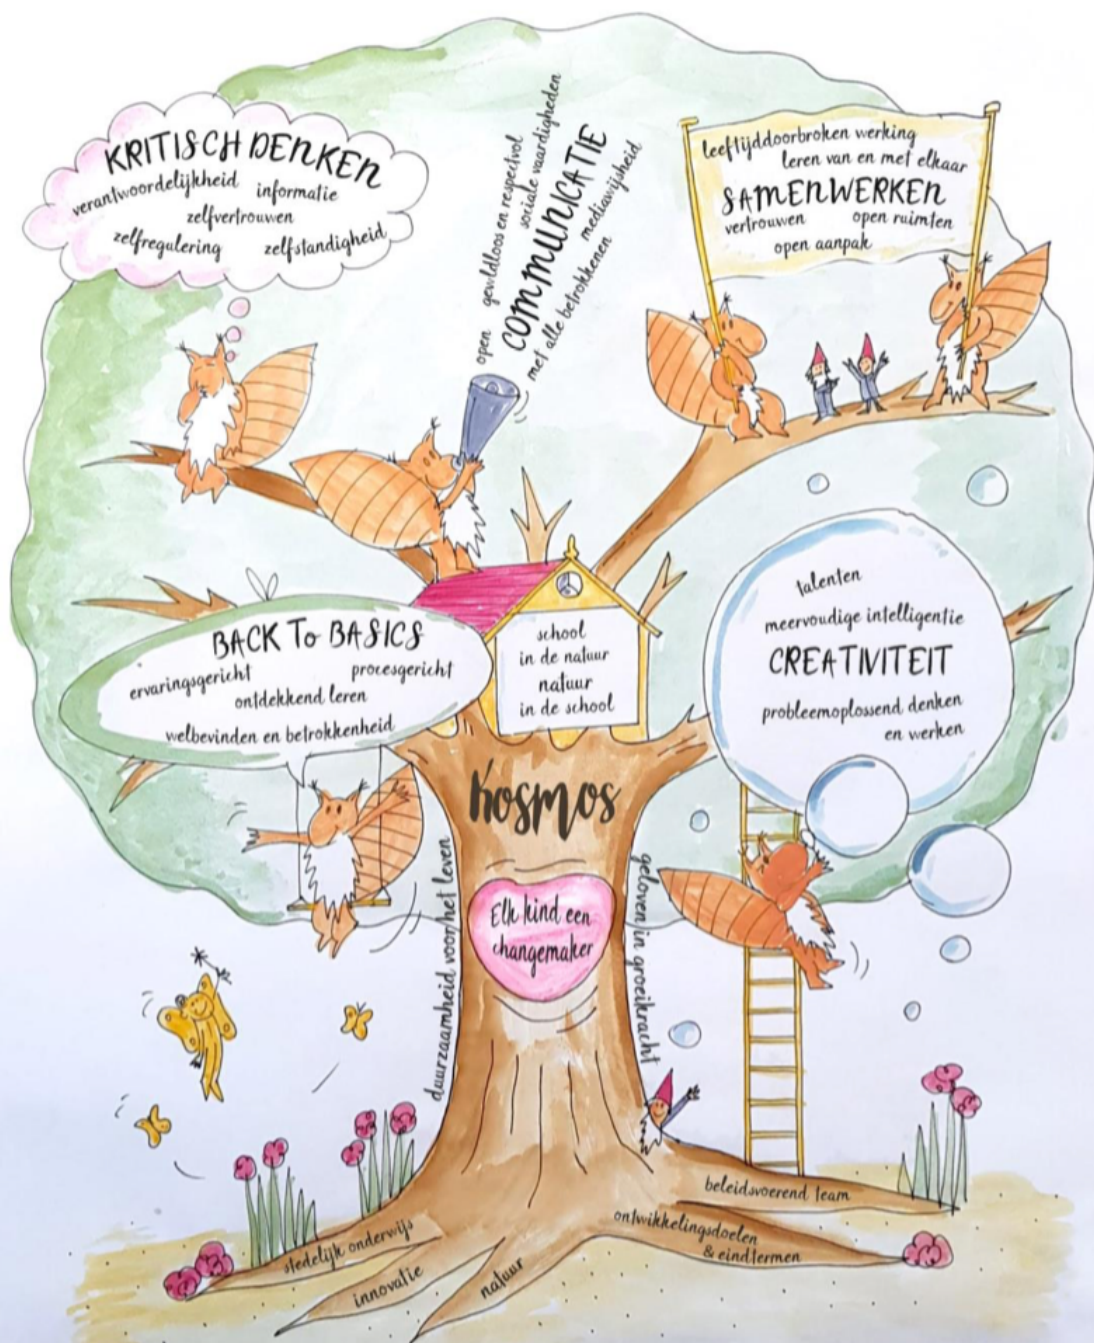 KRITISCH DENKEN
verantwoordelijkheid informatie
zelfvertrouwen
zelfregulering zelfstandigheid
open geweldloos en respectvol
sociale vaardigheden
COMMUNICATIE
mediawijsheid
met alle betrokkenen
leeftijddoorbroken werking
leren van en met elkaar
SAMENWERKEN
vertrouwen open ruimten
open aanpak
BACK To BASICS
ervaringsgericht procesgericht
ontdekkend leren
welbevinden en betrokkenheid
school
in de natuur
natuur
in de school
talenten
meervoudige intelligentie
CREATIVITEIT
probleemoplossend denken
en werken
Kosmos
Elk kind een
changemaker
duurzaamheid voor het leven
geloven in groeikracht
stedelijk onderwijs
innovatie
natuur
ontwikkelingsdoelen
& eindtermen
beleidsvoerend team